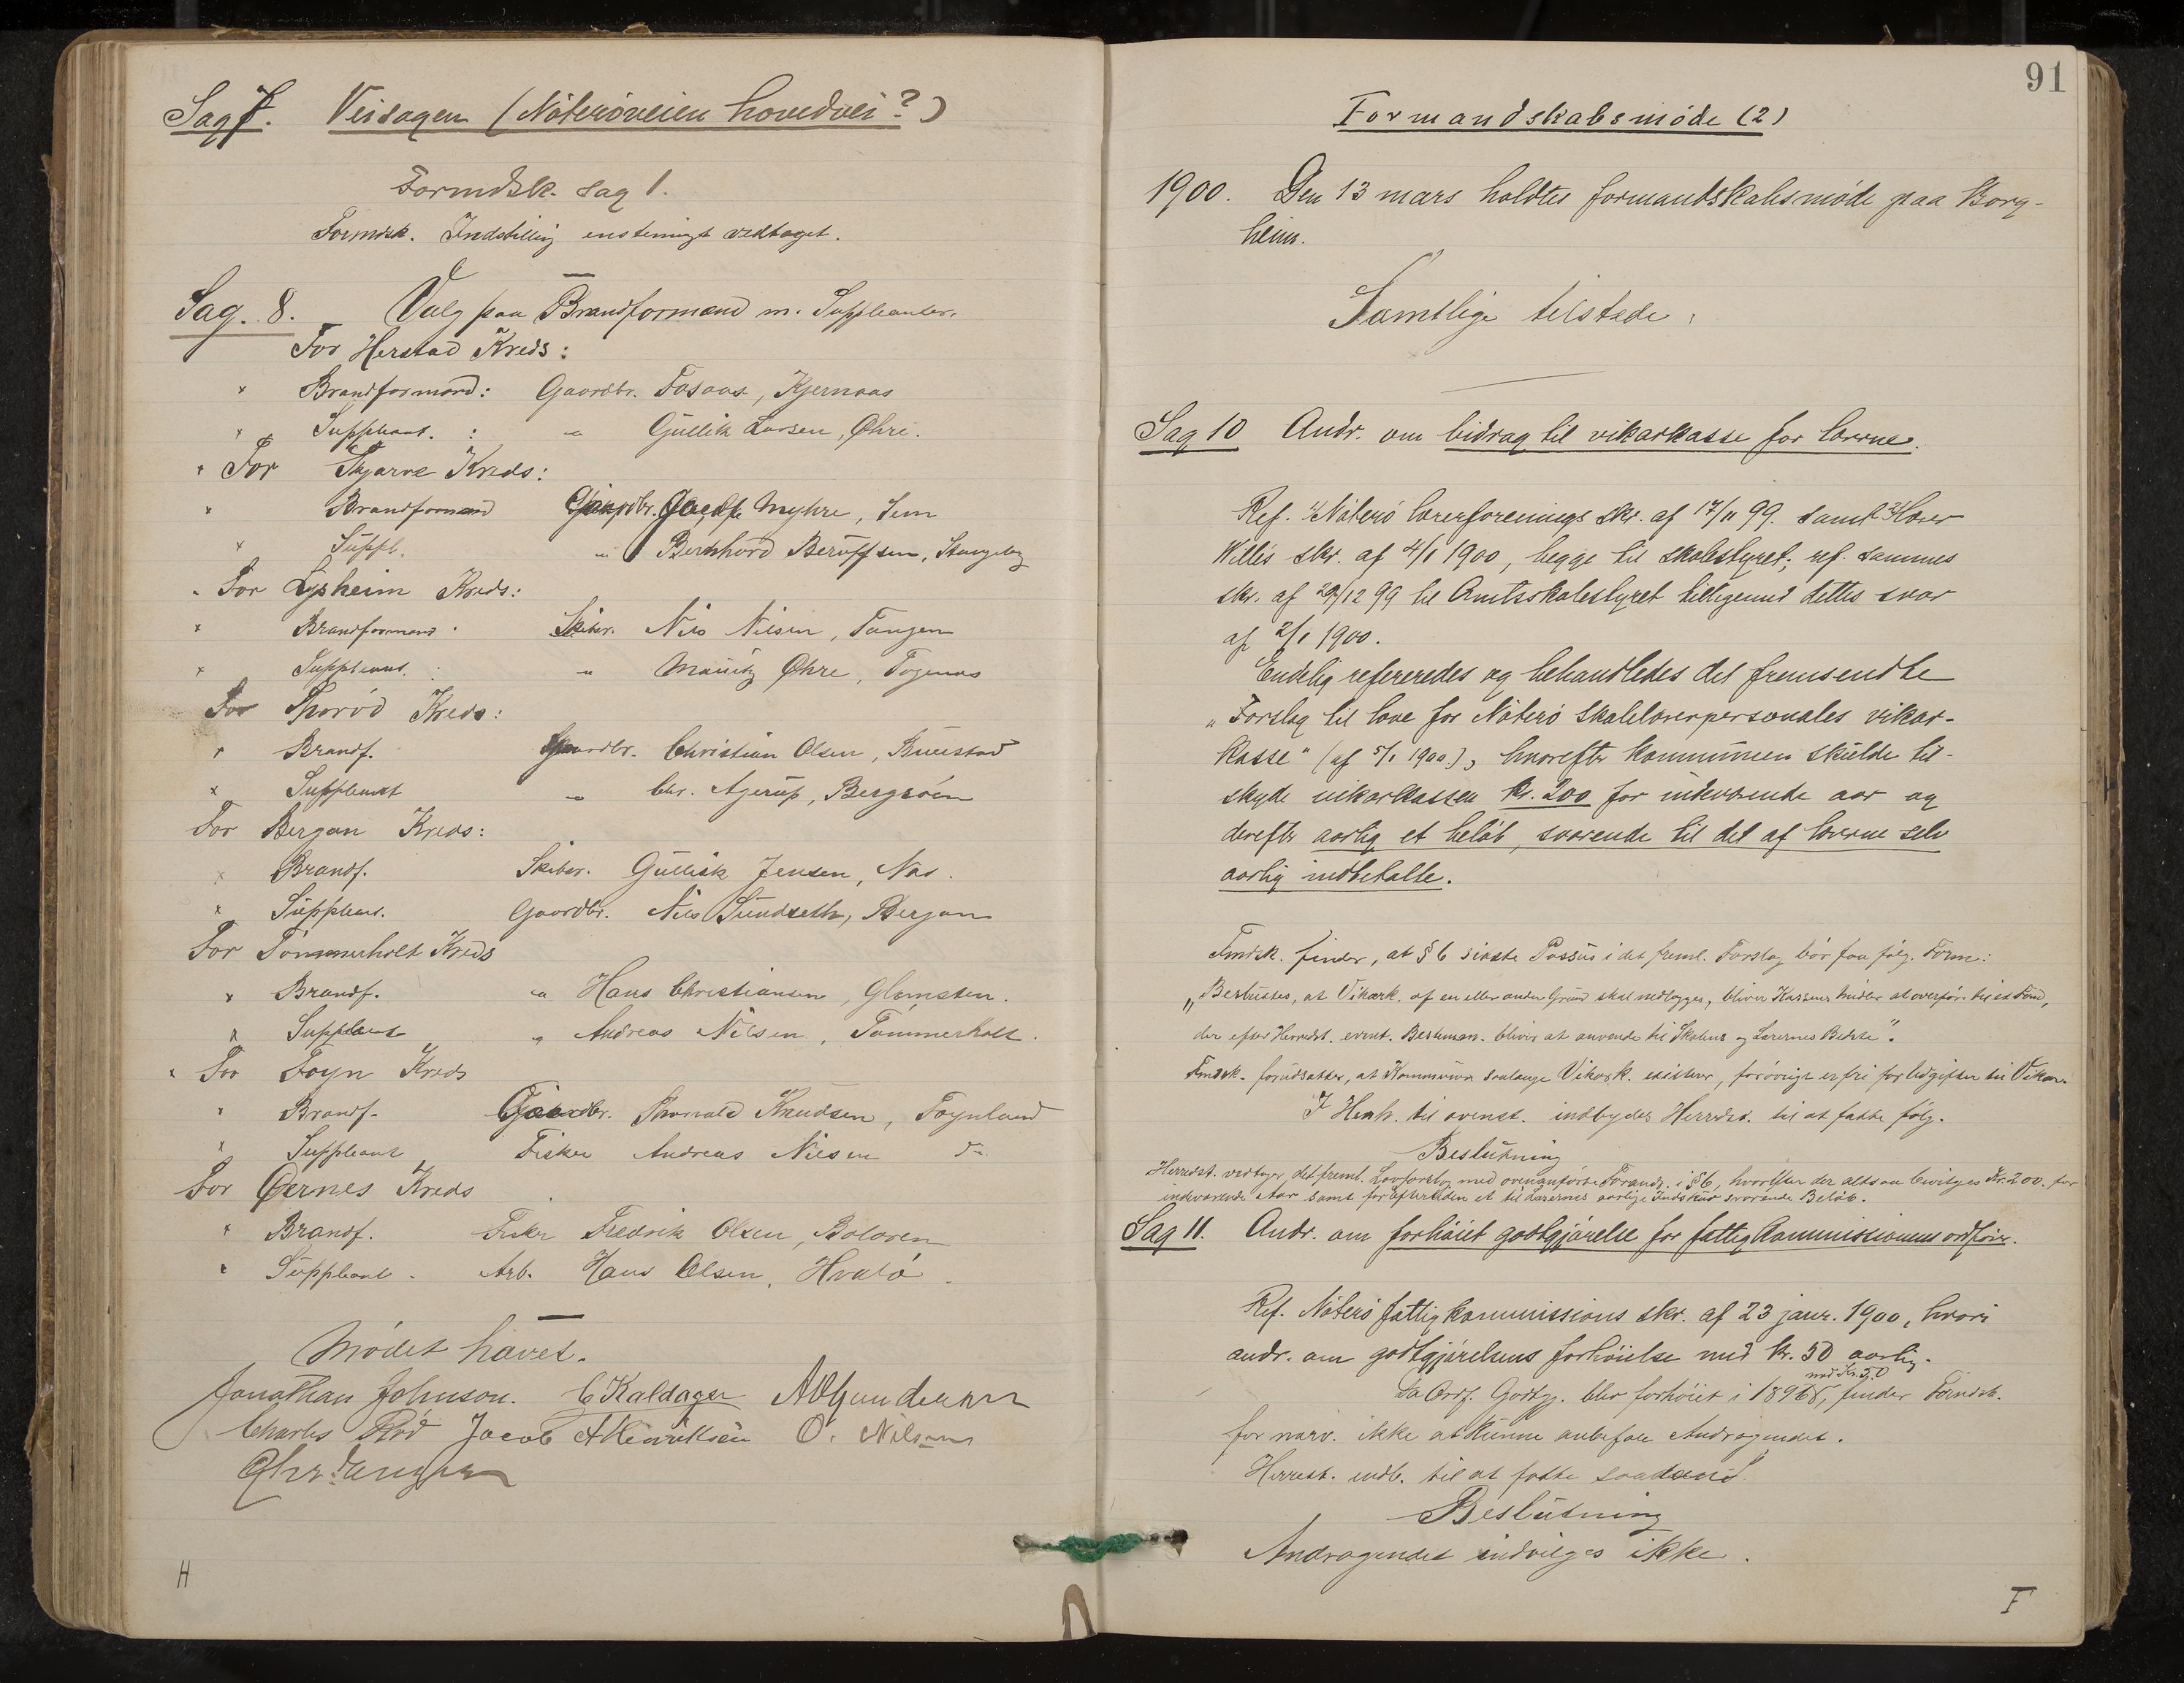 Sag 7. Veisagen (Nöteröveien hovedvei?)
Formdsk. sag 1.
Formdsk. Indstilling enstemigt vedtaget.
Sag. 8. Valg paa Brandformænd m. Suppleanter.
For Herstad Kreds:
x Brandformand: Gaardbr. Fosaas, Kjernaas
x Suppleant. : " Gullik Larsen, Øhre.
x For Skjærve Kreds:
x Brandformand Gaardbr. Myhre, Sem
x Suppl. " Bernhard Beruffsen, Stangeby
" For Lysheim Kreds:
x Brandformand Skibsr. Nils Nilsen, Tangen
x Suppleant. : " Mauritz Øhre,
For Thoröd Kreds:
x Brandf. Gaardbr. Christian Olsen, Buerstad
x Suppleant " Chr. Agerup,
For Bergan Kreds:
x Brandf. Skibsr. Gullik Jensen, Nes.
x Suppleant. Gaardbr. Nils Sundseth, Bergan
For Tömmerholt Kreds
x Brandf. " Hans Christiansen, Glomsten.
x Suppleant " Andreas Nilsen, Tömmerholt.
x For Foyn Kreds
x Brandf. Gaardbr. Thorvald Knudsen, Foynland
x Suppleant Fisker Andreas Nilsen do
For Öernes Kreds
x Brandf. Fisker Fredrik Olsen, Bolæren
x Suppleant. Arb. Hans Olsen, Hvalö.
Mödet hævet.
Jonathan Johnson. C Kaldager
Charles Röd Jacob A Henriksen O. Nilsen
H
91
Formandskabsmöde (2)
1900. Den 13 mars holdtes formandskabsmöde paa Borg-
heim.
Samtlige tilstede.
Sag 10 Andr. om bidrag til vikarkasse for lærerne.
Ref. 1) Nöterö lærerforenings skr. af 17/11 99. samt 2) lærer
Willes skr. af 4/1 1900, begge til skolestyret; ref. sammes
skr. af 29/12 99 til Amtsskolestyret tilligemed dettes svar
af 2/1 1900.
Endelig refereredes og behandledes det fremsendte
"Forslag til love for Nöterö skolelærerpersonales vikar-
kasse" (af 5/1 1900), hvorefter kommunen skulde til-
skyde vikarkassen kr. 200 for indeværende aar og
derefter aarlig et belöb, svarende til det af lærerne selv
aarlig indbetalte.
Fmdsk. finder, at § 6 sidste Passus i det freml. Forslag bör faa fölg. Form:
"Besluttes, at Vikark. af en eller anden Grund skal nedlægges, bliver Kassens Midler at overför. til et Fond,
der efter Herredst. event. Bestemm. bliver at anvende til Skolens og Lærernes Bedste".
Fmdsk. forudsætter, at Kommunen saalænge Vikark. existerer, forövrigt er fri for Udgifter til Vikar.
I Henh. til ovenst. indbydes Herredst. til at fatte fölg.
Beslutning
Herredst. vedtager det freml. Lovforslag med ovenanförte Forandr. i § 6, hvorefter der altsaa bevilges Kr. 200. for
indeværende Aar samt for Eftertiden et til Lærernes aarlige Indskud svarende Belöb.
Sag 11. Andr. om forhöiet godtgjörelse for fattigkommissionens ordförer.
Ref. Nöterö fattigkommissions skr. af 23 janr. 1900, hvori
andr. om godtgjörelsens forhöielse med kr. 50 aarlig.
med Kr. 50
Da Ordf. Godtgj. blev forhöiet i 1898, finder Formdsk.
for nærv. ikke at kunne anbefale Andragendet.
Herredst. indb. til at fatte saadand
Beslutning
Andragendet indvilges ikke.
F